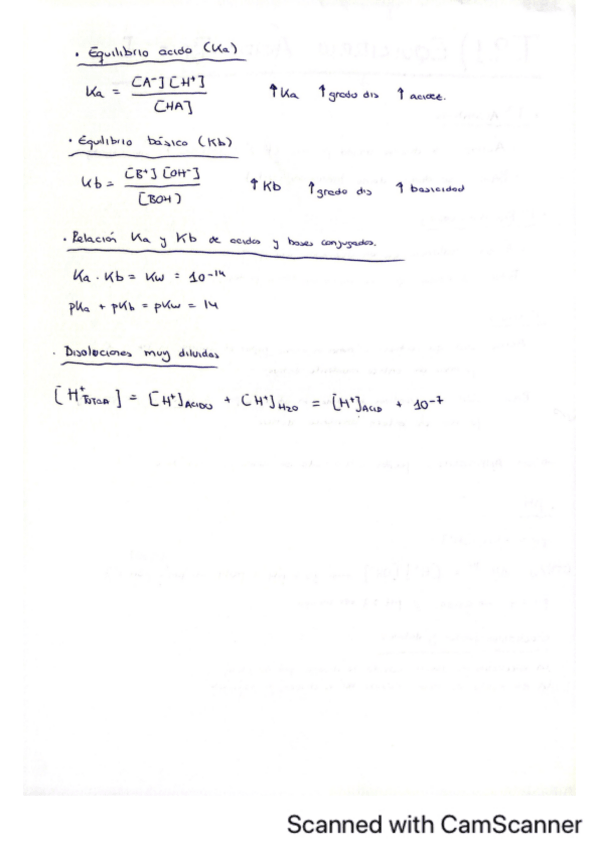 · Equilibrio acido (Ka)
Ka = [A⁻][H⁺] / [HA] ↑Ka ↑grado dis ↑ acidez.
· Equilibrio básico (Kb)
Kb = [B⁺][OH⁻] / [BOH) ↑Kb ↑grado dis ↑ basicidad
· Relación Ka y Kb de acidos y bases conjugados.
Ka · Kb = Kw = 10⁻¹⁴
pKa + pKb = pKw = 14
· Disoluciones muy diluidas
[H⁺TOTAL] = [H⁺]ACIDO + [H⁺]H₂O = [H⁺]ACID + 10⁻⁷
Scanned with CamScanner